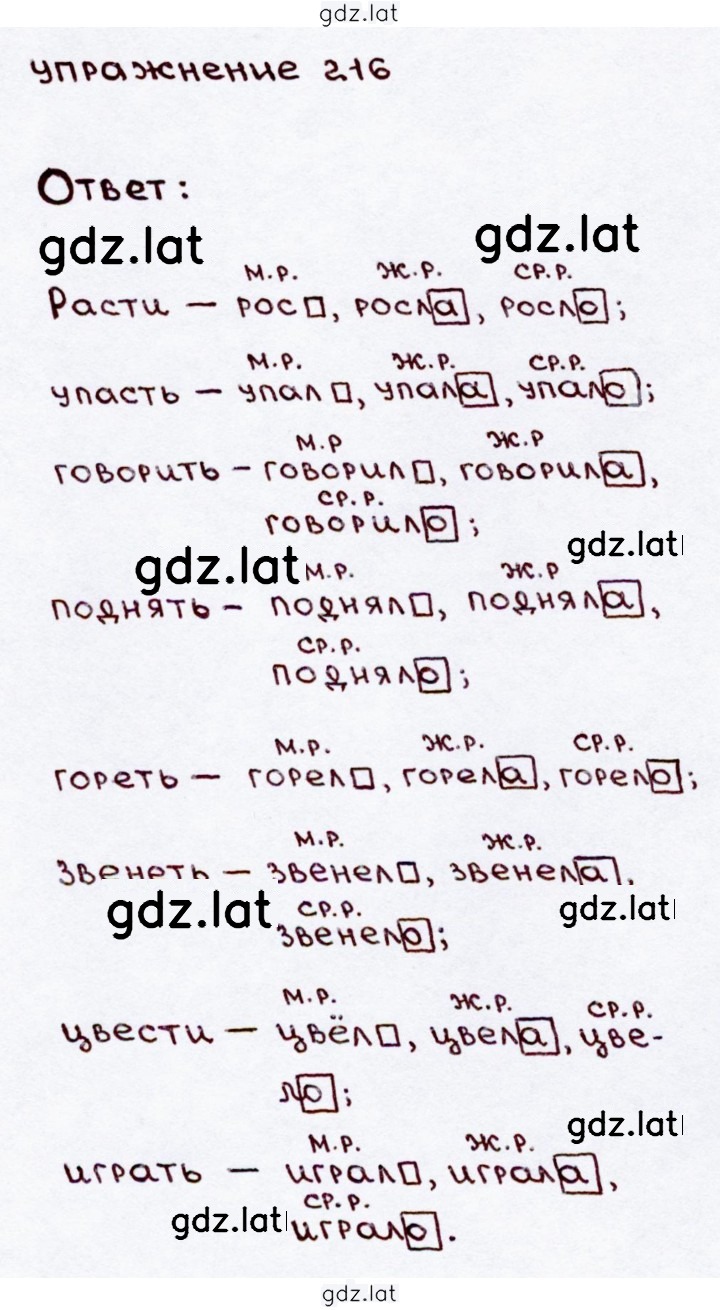 gdz.lat
упражнение 216
Ответ:
gdz.lat gdz.lat
м.р. ж.р. ср.р.
Расти – рос□, росла, росло;
м.р. ж.р. ср.р.
упасть – упал□, упала, упало;
м.р ж.р
говорить – говорил□, говорила,
ср.р.
говорило;
gdz.lat
gdz.lat м.р. ж.р
поднять – поднял□, подняла,
ср.р.
подняло;
м.р. ж.р. ср.р.
гореть – горел□, горела, горело;
м.р. ж.р.
звенеть – звенел□, звенела,
gdz.lat ср.р. gdz.lat
звенело;
м.р. ж.р. ср.р.
цвести – цвёл□, цвела, цве-
ло;
gdz.lat
м.р. ж.р.
играть – играл□, играла,
ср.р.
gdz.lat играло.
gdz.lat